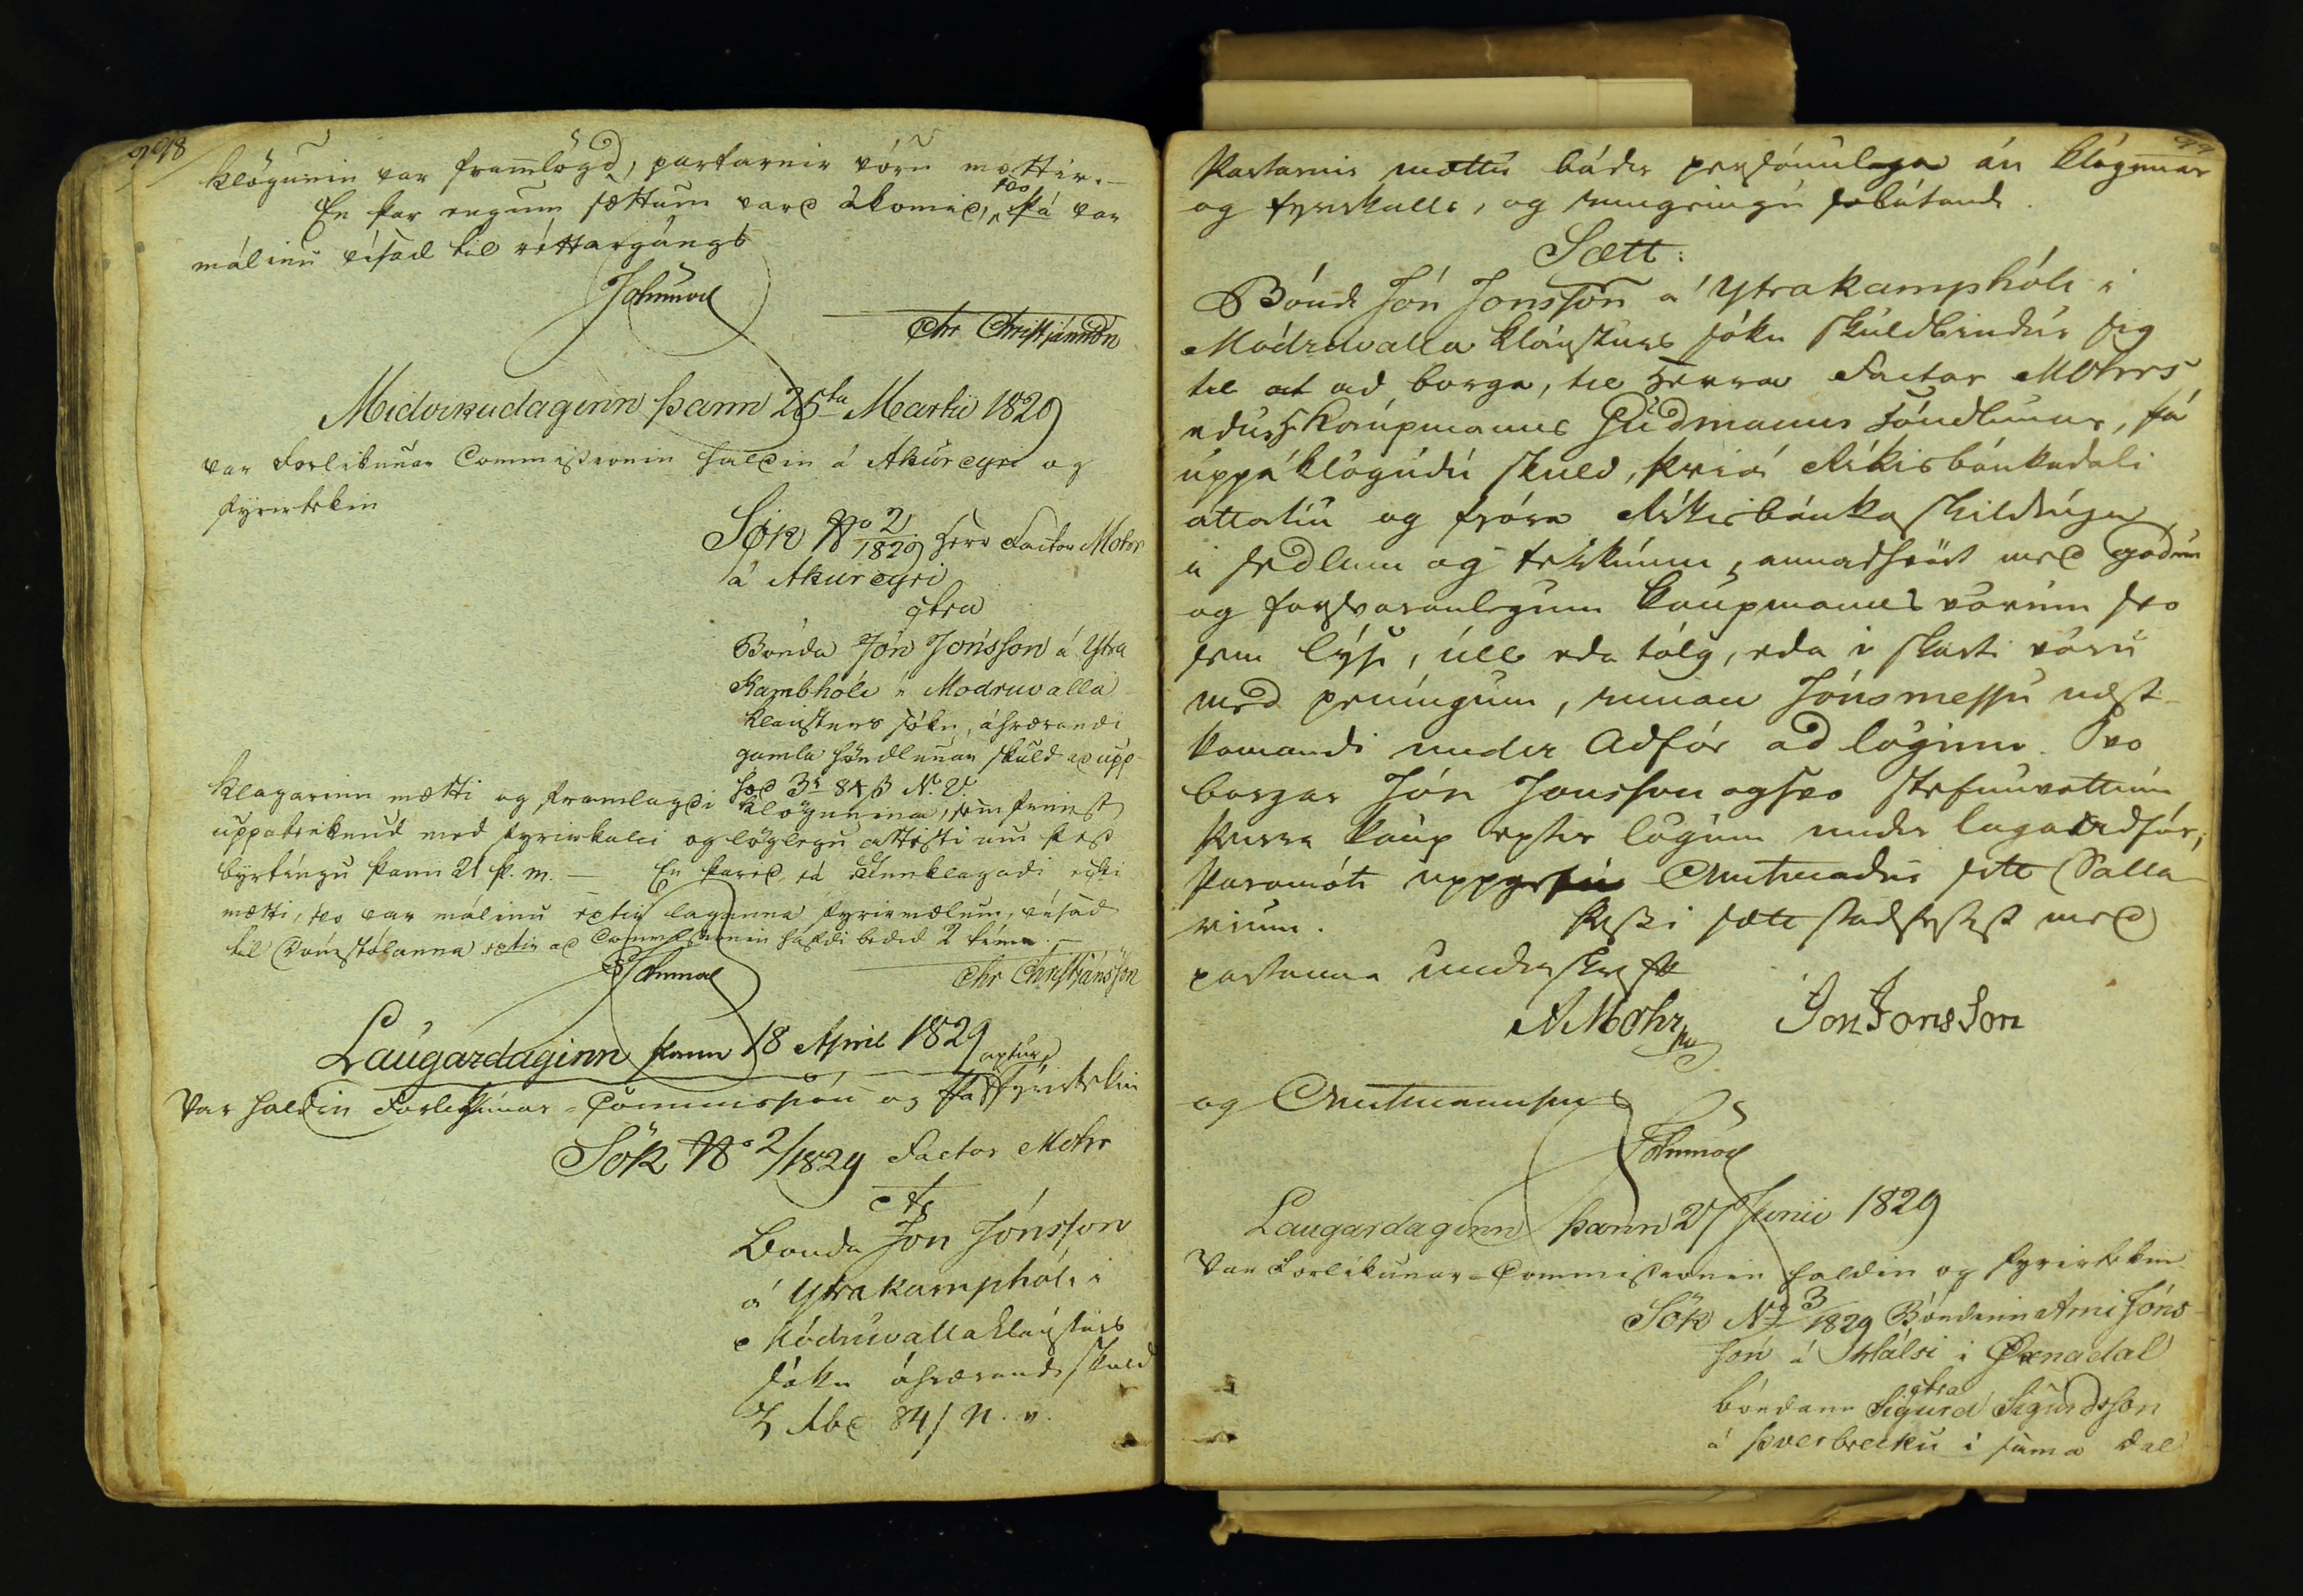 98
klögunin var framlögd, partarnir vóru mættir. –
En þar eingum sættum vard ákomid, svo þá var
málinu vísad til réttargángs
Chr Christjánsson
Midvikudaginn þann 25ta Martii 1829
var Forlikunar Commissionin haldin á Akureyri og
fyrirtekin
Sök No 2/1829 Herr Factor Mohr
á Akureyri
ctra
Bónda Jón Jónsson á Ytra
Kambhóli í Modruvalla
klausturs sókn, áhrærandi
gamla höndlunar skuld ad upp-
hæd 3r 84 s N. V.
Klagarinn mætti og framlagdi klögunina, sem finnst
uppáteiknud med fyrirkalli og löglegu attesti um þess
byrtíngu þann 21 þ. m. – En þared sá Innklagadi ecki
mætti, svo var málinu eptir laganna fyrirmælum, vísad
til Dómstólanna eptir ad Commissionin hafdi bedid 2 tíma. –
Chr Christjánsson
Laugardaginn þann 18 April 1829
Var haldin Forlikunar-Commission og þá aptur fyrirtekin
Sök No 2/1829 Factor Mohr
ctr
Bonda Jón Jónsson
á Ytrakamphóli i
Módruvallaklausturs
sókn áhrærande skuld
3 Rbd 84 s N. v.
99
Partarnir mættu bádir persónulega án klögunar
og fyrirkalls, og inngeingu soleidande
Sætt:
Bónde Jón Jonsson á Ytrakamphóli i
Módruvalla klausturs sókn skuldbindur sig
til at ad borga, til Herra Factor Mohrs
edur Kaupmanns Gudmanns höndlunar, þá
uppáklögudu skuld, þriá Ríkisbánkadali
áttatíu og fjóra Ríkisbánkaskildínga
i sedlum og teiknum, annadhvört med godum
og forsvaranlegum kaupmanns vörum svo
sem lýsi, ull eda tólg, eda i slíkri vöru
med peníngum, innan Jónsmessu næst-
komandi under Adför ad lögum. Svo
borgar Jón Jonsson ogsvo stefnuvottum
þeirra kaup eptir lögum under laga adför;
þaramóti uppgefur Amtmadur sitt Salla-
rium. Þessi sætt stadfestist med
partanna underskrift
A Mohr Jon Jons Son
og Amtmannsins
Laugardaginn þann 27 Junii 1829
Var Forlikunar-Commissionin haldin og fyrirtekin
Sök No 3/1829 Bóndinn Arni Jóns-
són á Hálsi i Öxnadal
ctra
bóndann Sigurd Sigurdsson
á þverbrecku i sama dal